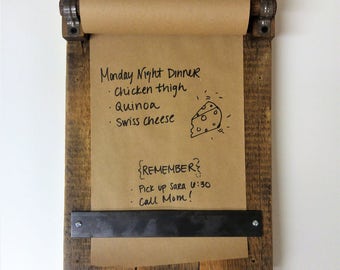 Monday Night Dinner
· Chicken thigh
· Quinoa
· Swiss cheese
{REMEMBER}
· Pick up Sara 6:30
· Call Mom!